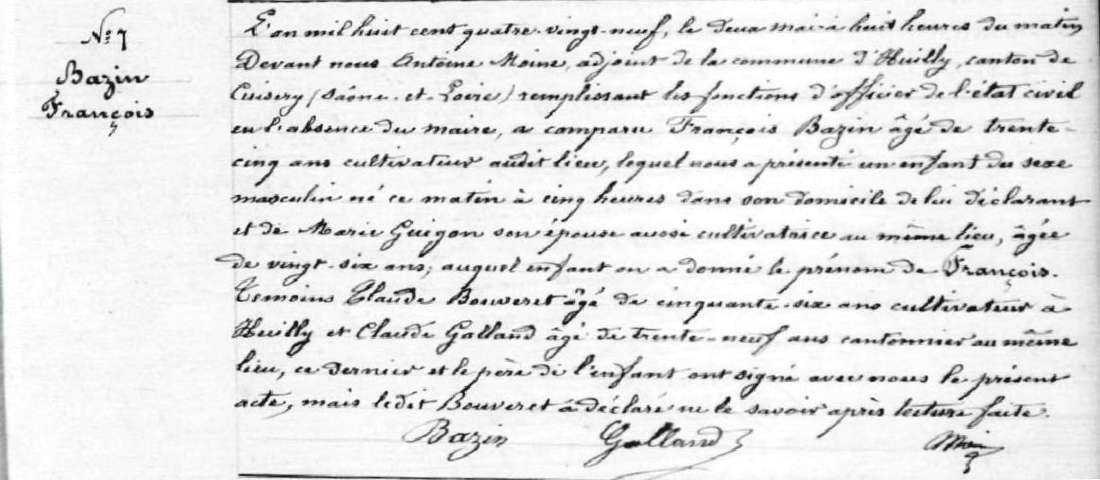 N° 7
Bazin
François
L'an mil huit cent quatre-vingt-neuf, le deux mai à huit heures du matin
Devant nous Antoine Moine, adjoint de la commune d'Huilly, canton de
Cuisery (Saône-et-Loire) remplissant les fonctions d'officier de l'état civil
en l'absence du maire, a comparu François Bazin âgé de trente-
cinq ans cultivateur audit lieu, lequel nous a présenté un enfant du sexe
masculin né ce matin à cinq heures dans son domicile de lui déclarant
et de Marie Guigon son épouse aussi cultivatrice au même lieu, âgée
de vingt-six ans; auquel enfant on a donné le prénom de François.
Temoins Claude Bouveret âgé de cinquante-six ans cultivateur à
Huilly et Claude Galland âgé de trente-neuf ans cantonnier au même
lieu, ce dernier et le père de l'enfant ont signé avec nous le présent
acte, mais ledit Bouveret a déclaré ne le savoir après lecture faite.
Bazin Galland